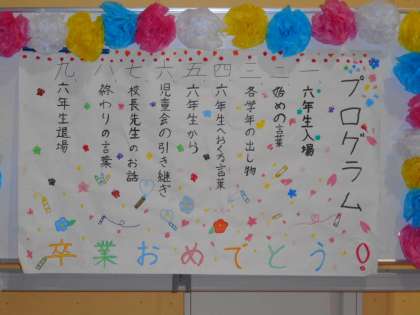 プログラム
一 六年生入場
二 始めの言葉
三 各学年の出し物
四 六年生へおくる言葉
五 六年生から
六 児童会の引き継ぎ
七 校長先生のお話
八 終わりの言葉
九 六年生退場
卒業おめでとう!